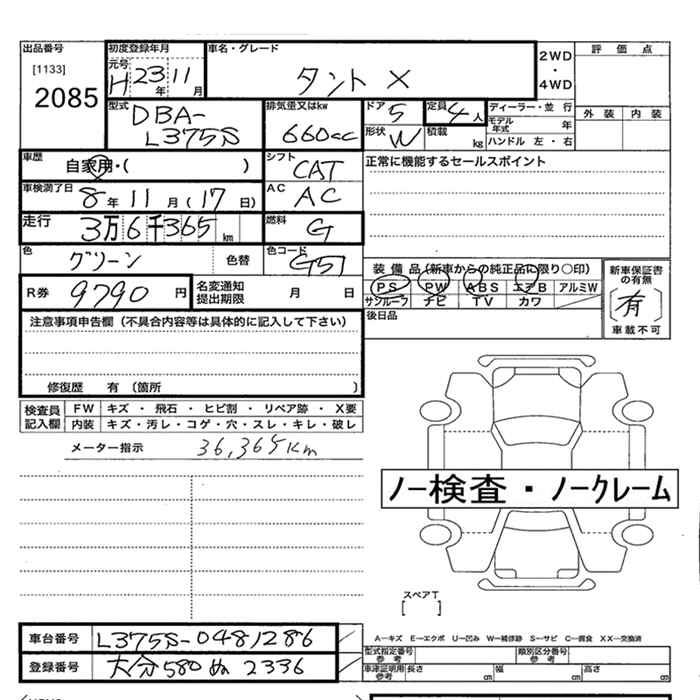 出品番号 初度登録年月 車名・グレード 2WD 評価点
[1133] 元号 H 23年 11月 タント X ・ 4WD
2085
型式 排気量又はkw ドア 5 定員 4人 ディーラー・並行 外装 内装
DBA- モデル年式 年
L375S 660cc 形状 W 積載 kg ハンドル 左・右
車歴 自家用・( ) シフト CAT 正常に機能するセールスポイント
車検満了日 8年 11月 (17日) AC AC
走行 3万6千365km 燃料 G
色 グリーン 色替 色コード G51 装備品(新車からの純正品に限り○印) 新車保証書の有無
R券 9790円 名変通知提出期限 月 日 PS PW ABS エアB アルミW 有
サンルーフ ナビ TV カワ 車載不可
注意事項申告欄(不具合内容等は具体的に記入して下さい) 後日品
修復歴 有(箇所 )
検査員記入欄 FW キズ・飛石・ヒビ割・リペア跡・X要
内装 キズ・汚レ・コゲ・穴・スレ・キレ・破レ
メーター指示 36,365km
ノー検査・ノークレーム
スペアT
[ ]
車台番号 L375S-0481286 A―キズ E―エクボ U―凹み W―補修跡 S―サビ C―腐食 XX―交換済
型式指定番号 参考 類別区分番号 参考
登録番号 大分 580 ぬ 2336 車検証明用 参考 長さ cm 幅 cm 高さ cm